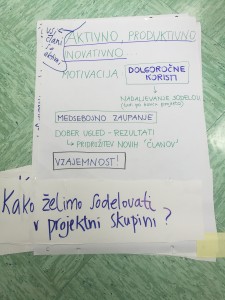 vsi
člani
so
aktivni
AKTIVNO, PRODUKTIVNO
INOVATIVNO
MOTIVACIJA
DOLGOROČNE
KORISTI
NADALJEVANJE SODELOV.
MEDSEBOJNO ZAUPANJE
DOBER UGLED - REZULTATI
PRIDOBITEV NOVIH "ČLANOV"
VZAJEMNOST!
Kako želimo sodelovati
v projektni skupini?